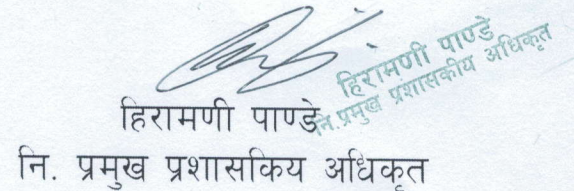 हिरामणी पाण्डे
नि.प्रमुख प्रशासकीय अधिकृत
हिरामणी पाण्डे
नि. प्रमुख प्रशासकिय अधिकृत